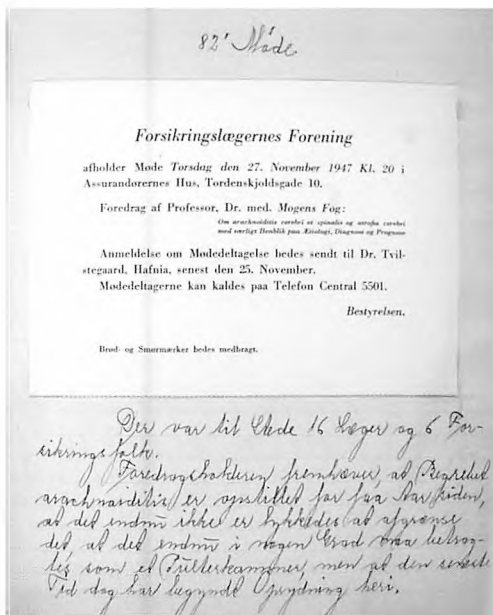 82' Møde
Forsikringslægernes Forening
afholder Møde Torsdag den 27. November 1947 Kl. 20 i
Assurandørernes Hus, Tordenskjoldsgade 10.
Foredrag af Professor, Dr. med. Mogens Fog:
Om arachnoiditis cerebri et spinalis og atrofia cerebri
med særligt Henblik paa Ætiologi, Diagnose og Prognose
Anmeldelse om Mødedeltagelse bedes sendt til Dr. Tvil-
stegaard, Hafnia, senest den 25. November.
Mødedeltagerne kan kaldes paa Telefon Central 5501.
Bestyrelsen.
Brød- og Smørmærker bedes medbragt.
Der var til Stede 16 Læger og 6 For-
sikringsfolk.
Foredragsholderen fremhæver, at Begrebet
arachnoiditis er opstillet for faa Aar siden,
at det endnu ikke er lykkedes at afgrænse
det, at det endnu i nogen Grad maa betrag-
tes som et Pulterkammer, men at den seneste
Tid dog har begyndt Oprydning heri.